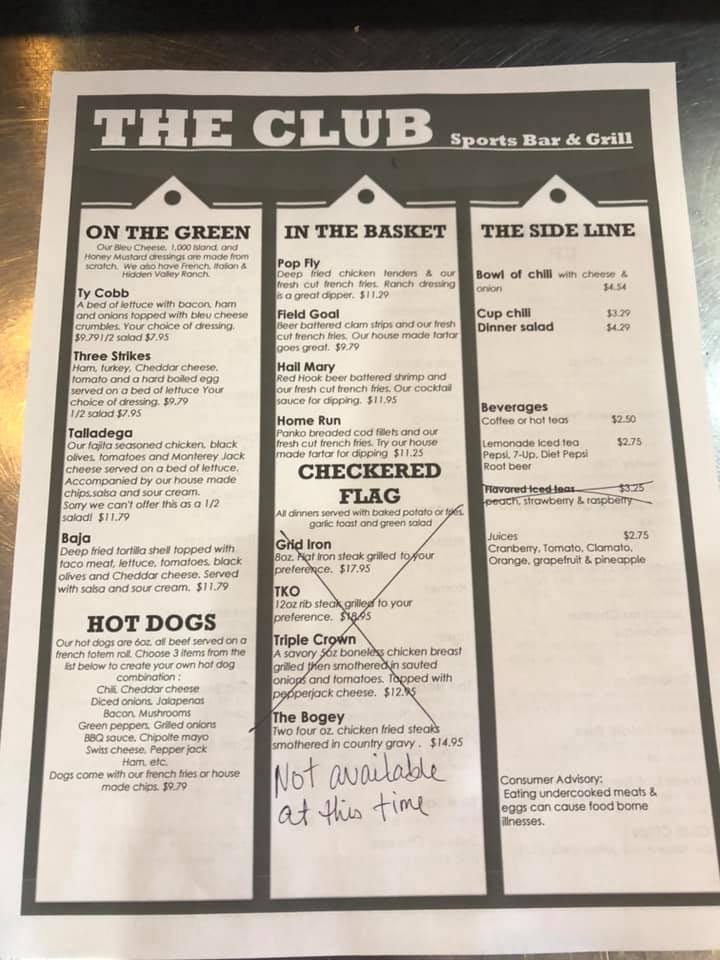 THE CLUB Sports Bar & Grill
ON THE GREEN
Our Bleu Cheese, 1,000 Island, and
Honey Mustard dressings are made from
scratch. We also have French, Italian &
Hidden Valley Ranch.
Ty Cobb
A bed of lettuce with bacon, ham
and onions topped with bleu cheese
crumbles. Your choice of dressing.
$9.791/2 salad $7.95
Three Strikes
Ham, turkey, Cheddar cheese,
tomato and a hard boiled egg
served on a bed of lettuce Your
choice of dressing. $9.79
1/2 salad $7.95
Talladega
Our fajita seasoned chicken, black
olives, tomatoes and Monterey Jack
cheese served on a bed of lettuce.
Accompanied by our house made
chips,salsa and sour cream.
Sorry we can't offer this as a 1/2
salad! $11.79
Baja
Deep fried tortilla shell topped with
taco meat, lettuce, tomatoes, black
olives and Cheddar cheese. Served
with salsa and sour cream. $11.79
HOT DOGS
Our hot dogs are 6oz. all beef served on a
french totem roll. Choose 3 items from the
list below to create your own hot dog
combination :
Chili, Cheddar cheese
Diced onions, Jalapenos
Bacon, Mushrooms
Green peppers, Grilled onions
BBQ sauce, Chipolte mayo
Swiss cheese, Pepper jack
Ham, etc.
Dogs come with our french fries or house
made chips. $9.79
IN THE BASKET
Pop Fly
Deep fried chicken tenders & our
fresh cut french fries. Ranch dressing
is a great dipper. $11.29
Field Goal
Beer battered clam strips and our fresh
cut french fries. Our house made tartar
goes great. $9.79
Hail Mary
Red Hook beer battered shrimp and
our fresh cut french fries. Our cocktail
sauce for dipping. $11.95
Home Run
Panko breaded cod fillets and our
fresh cut french fries. Try our house
made tartar for dipping $11.25
CHECKERED
FLAG
All dinners served with baked potato or fries,
garlic toast and green salad
Grid Iron
8oz. flat Iron steak grilled to your
preference. $17.95
TKO
12oz rib steak grilled to your
preference. $18.95
Triple Crown
A savory 5oz boneless chicken breast
grilled then smothered in sauted
onions and tomatoes. Topped with
pepperjack cheese. $12.95
The Bogey
Two four oz. chicken fried steaks
smothered in country gravy . $14.95
Not available
at this time
THE SIDE LINE
Bowl of chili with cheese &
onion $4.54
Cup chili $3.29
Dinner salad $4.29
Beverages
Coffee or hot teas $2.50
Lemonade Iced tea $2.75
Pepsi, 7-Up, Diet Pepsi
Root beer
Flavored Iced teas $3.25
peach, strawberry & raspberry
Juices $2.75
Cranberry, Tomato, Clamato,
Orange, grapefruit & pineapple
Consumer Advisory:
Eating undercooked meats &
eggs can cause food borne
illnesses.